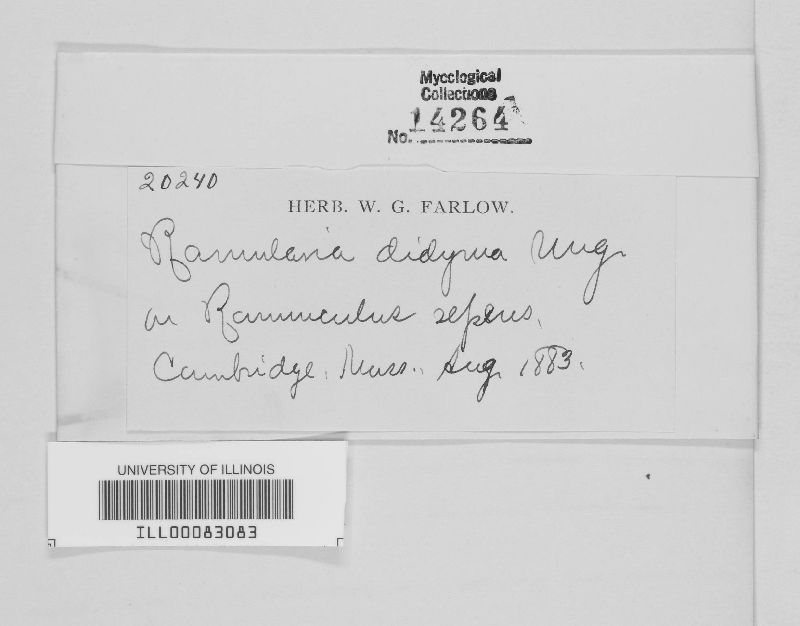 Mycological
Collections
No. 14264
20240
HERB. W. G. FARLOW.
Ramularia didyma Ung.
on Ranunculus repens.
Cambridge, Mass., Aug. 1883.
UNIVERSITY OF ILLINOIS
ILL00083083